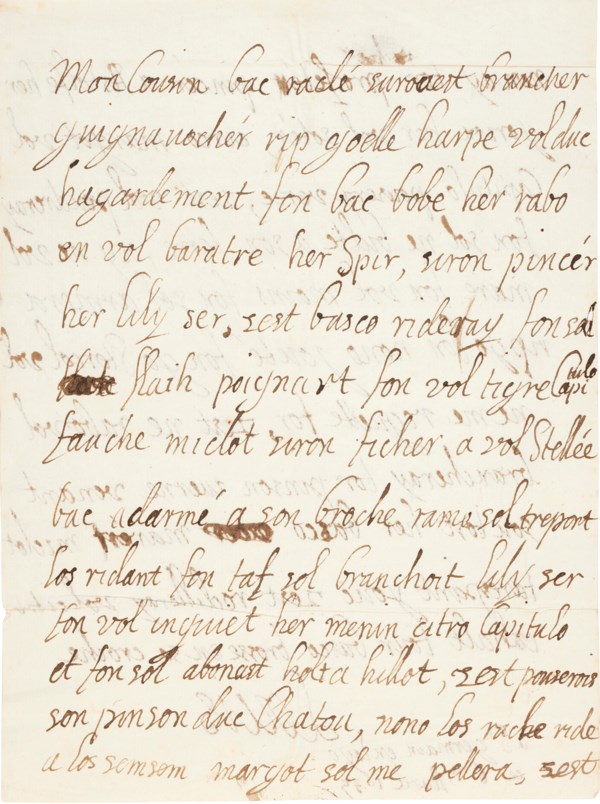 Mon Cousin bac raclé suroест brancher
guignauocher rip goelle harpe vol duc
hagardement fon bac bobe her rabo
en vol baratre her Spir, siron pincér
her lily ser, zest basco rideray fon sol
flaih poignart fon vol tigre Capitulo
fauche miclot siron ficher a vol Stellée
bac adarmé a son broche rame sol treport
los ridant fon taf sol branchoit lily ser
fon vol inquiet her menin citro Capitulo
et fon sol abonast holta hillot, zest pouserois
son pinson duc Chatou, nono los rache ride
a los semsom margot sol me pellera, zest